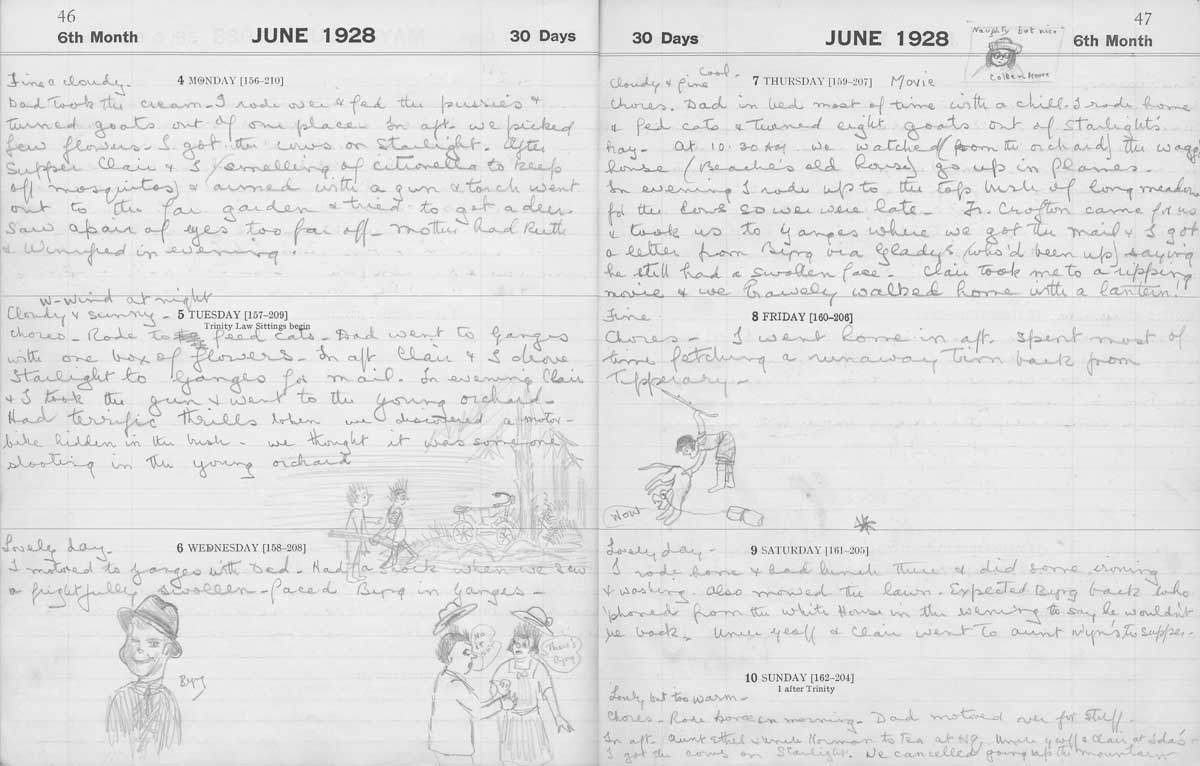 46
6th Month
JUNE 1928
30 Days
Fine & cloudy.
4 MONDAY [156-210]
Dad took the cream - I rode over & fed the pussies &
turned goats out of one place. In aft. we picked
few flowers - I got the cows on Starlight. After
supper Clair & I (smelling of citronella to keep
off mosquitos) & armed with a gun & torch went
out to the far garden & tried to get a deer.
Saw a pair of eyes too far off - mother had Ruth
& Winifred in evening.
W-wind at night
Cloudy & sunny -
5 TUESDAY [157-209]
Trinity Law Sittings begin
Chores - Rode to feed cats - Dad went to Ganges
with one box of flowers - In aft Clair & I drove
Starlight to Ganges for mail. In evening Clair
& I took the gun & went to the young orchard -
Had terrific thrills when we discovered a motor-
bike hidden in the bush - we thought it was someone
shooting in the young orchard
Lovely day -
6 WEDNESDAY [158-208]
I motored to Ganges with Dad - Had a shock when we saw
a frightfully swollen-faced Byng in Ganges -
Byng
There's
Byng
47
30 Days
JUNE 1928
6th Month
"Naughty but nice"
Colleen Moore
Cloudy & fine Cool -
7 THURSDAY [159-207]
Movie
Chores. Dad in bed most of time with a chill. I rode home
& fed cats & turned eight goats out of Starlight's
hay - At 10.30 AM. we watched (from the orchard) the
house (Beache's old house) go up in flames.
In evening I rode up to the top bush of long meadow
for the cows so we were late - Fr. Crofton came for us
& took us to Ganges where we got the mail & I got
a letter from Byng via Gladys (who'd been up) saying
he still had a swollen face - Clair took me to a ripping
movie & we bravely walked home with a lantern!
Fine
8 FRIDAY [160-206]
Chores - I went home in aft. spent most of
time fetching a runaway Turn back from
Tipperary -
WOW
Lovely day -
9 SATURDAY [161-205]
I rode home & had lunch there & did some ironing
& washing. Also mowed the lawn. Expected Byng back who
'phoned from the White House in the evening to say he wouldn't
be back. Uncle Geoff & Clair went to aunt Wyn's to supper -
10 SUNDAY [162-204]
1 after Trinity
Lovely but too warm -
Chores - Rode home in morning - Dad motored over for stuff.
In aft. Aunt Ethel & Uncle Norman to tea at Uncle Geoff & Clair at Ida's -
I got the cows on Starlight. We cancelled going up the mountain